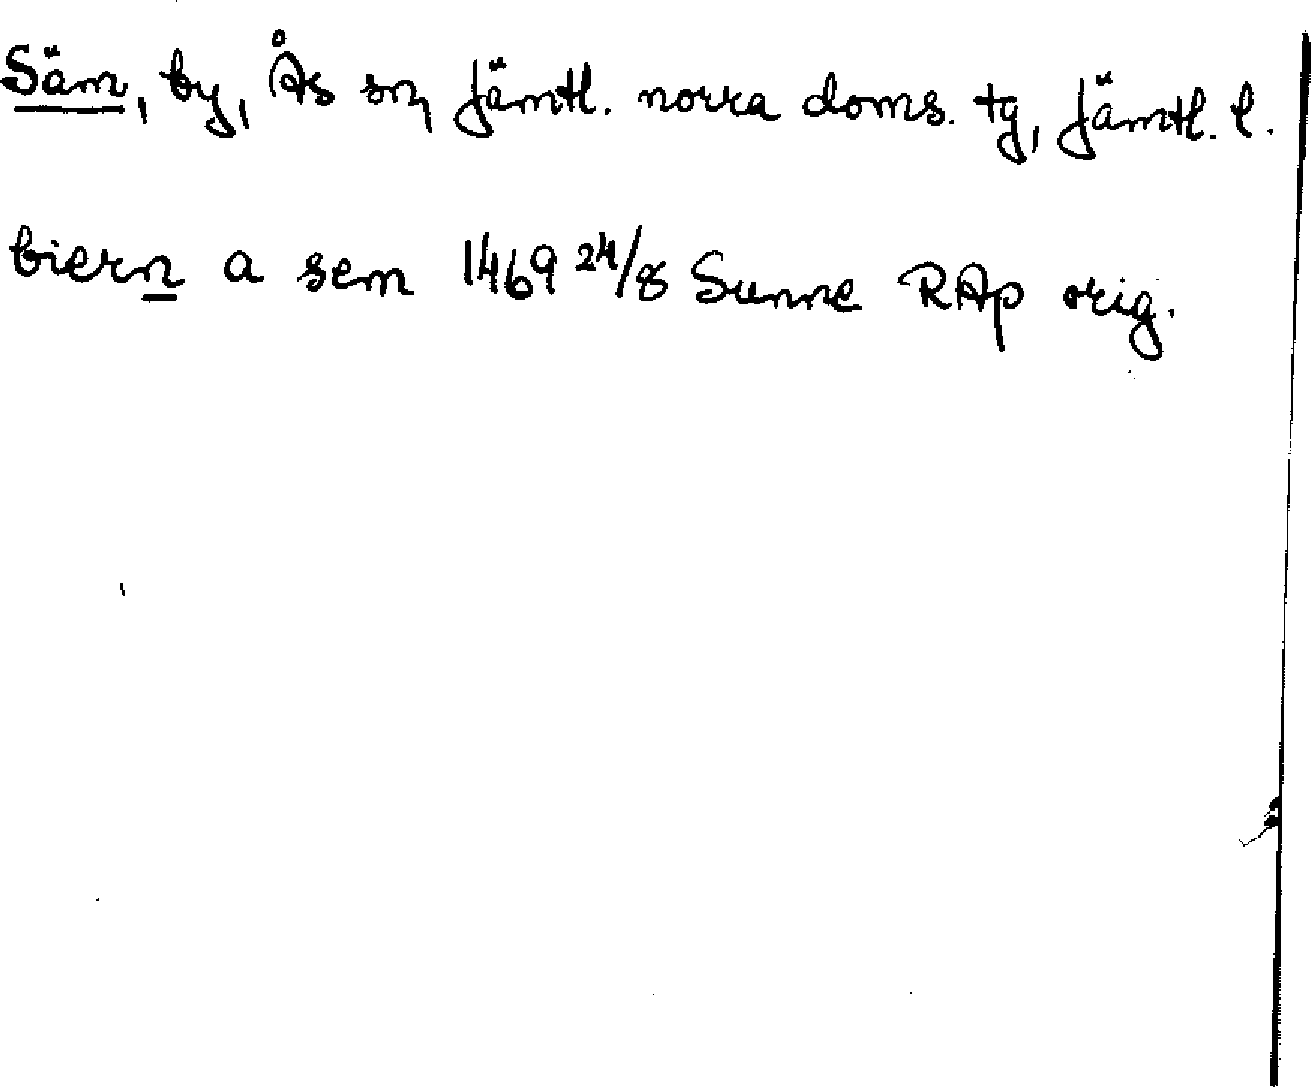 Säm, by, Ås sn, Jämtl. norra doms. tg, Jämtl. l.
biern a sem 1469 24/8 Sunne RAp orig.